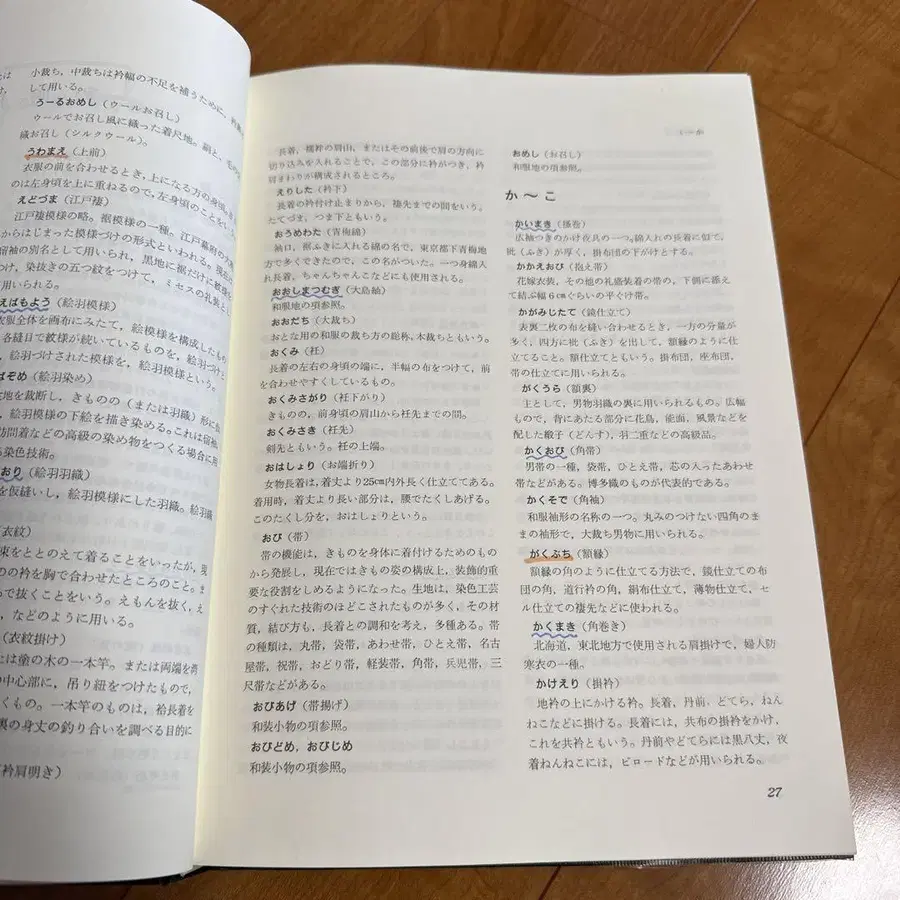 小裁ち,中裁ちは衿幅の不足を補うために,
して用いる。
うーるおめし(ウールお召し)
ウールでお召し風に織った着尺地。絹と,毛の
織お召し(シルクウール)。
うわまえ(上前)
衣服の前を合わせるとき,上になる方の身頃。
のは左身頃を上に重ねるので,左身頃のことを
えどづま(江戸褄)
江戸褄模様の略。裾模様の一種。江戸幕府の大
からはじまった模様づけの形式といわれる。現在で
留袖の別名として用いられ,黒地に裾だけに模様を
つけ,染抜きの五つ紋をつけて,ミセスの礼装として
用いられる。
えばもよう(絵羽模様)
衣服全体を画布にみたて,絵模様を構成したもの
各縫目で紋様が続いているものを,絵羽づけ
絵羽づけされた模様を,絵羽模様という。
ばぞめ(絵羽染め)
地を裁断し,きものの(または羽織)形に
絵羽模様の下絵を描き染める。これは留袖
訪問着などの高級の染め物をつくる場合に用
る染色技術。
おり(絵羽羽織)
を仮縫いし,絵羽模様にした羽織。絵羽
(衣紋)
束をととのえて着ることをいったが,現
のの衿を胸で合わせたところのこと。ま
で抜くことをいう。えもんを抜く,え
,などのように用いる。
(衣紋掛け)
には童の木の一本竿。または両端を
の中心部に,吊り紐をつけたもので,
くもの。一本竿のものは,袷長着を
裏の身丈の釣り合いを調べる目的に
(衿肩明き)
長着,襦袢の肩山,またはその前後で肩の方向に
切り込みを入れることで,この部分に衿がつき,衿
肩まわりが構成されるところ。
えりした(衿下)
長着の衿付け止まりから,褄先までの間をいう。
たてづま,つま下ともいう。
おうめわた(青梅綿)
袖口,裾ふきに入れる綿の名で,東京都下青梅地
方で多くできたので,この名がついた。一つ身綿入
れ長着,ちゃんちゃんこなどにも使用される。
おおしまつむぎ(大島紬)
和服地の項参照。
おおだち(大裁ち)
おとな用の和服の裁ち方の総称、本裁ちともいう。
おくみ(衽)
長着の左右の身頃の端に,半幅の布をつけて,前
を合わせやすくしているもの。
おくみさがり(衽下がり)
きものの,前身頃の肩山から衽先までの間。
おくみさき(衽先)
剣先ともいう。衽の上端。
おはしょり(お端折り)
女物長着は,着丈より25cm内外長く仕立ててある。
着用時,着丈より長い部分は,腰でたくしあげる。
このたくし分を,おはしょりという。
おび(帯)
帯の機能は,きものを身体に着付けるためのもの
から発展し,現在ではきもの姿の構成上,装飾的重
要な役割をしめるようになった。生地は,染色工芸
のすぐれた技術のほどこされたものが多く,その材
質,結び方も,長着との調和を考え,多種ある。帯
の種類は,丸帯,袋帯,あわせ帯,ひとえ帯,名古
屋帯,祝帯,おどり帯,軽装帯,角帯,兵児帯,三
尺帯などがある。
おびあげ(帯揚げ)
和装小物の項参照。
おびどめ,おびじめ
和装小物の項参照。
おめし(お召し)
和服地の項参照。
か〜こ
かいまき(掻巻)
広袖つきのかけ夜具の一つ。綿入れの長着に似て,
袘(ふき)が厚く,掛布団の下がけとする。
かかえおび(抱え帯)
花嫁衣装,その他の礼盛装着の帯の,下側に添え
て結ぶ幅6cmぐらいの平ぐけ帯。
かがみじたて(鏡仕立て)
表裏二枚の布を縫い合わせるとき,一方の分量が
多く,四方に袘(ふき)を出して,額縁のように仕
立てること。額仕立てともいう。掛布団,座布団,
帯の仕立てに用いられる。
がくうら(額裏)
主として,男物羽織の裏に用いられるもの。広幅
もので,背にあたる部分に花鳥,能面,風景などを
配した緞子(どんす),羽二重などの高級品。
かくおび(角帯)
男帯の一種,袋帯,ひとえ帯,芯の入ったあわせ
帯などがある。博多織のものが代表的である。
かくそで(角袖)
和服袖形の名称の一つ。丸みのつけない四角のま
まの袖形で,大裁ち男物に用いられる。
がくぶち(額縁)
額縁の角のように仕立てる方法で,鏡仕立ての布
団の角,道行衿の角,絹布仕立て,薄物仕立て,セ
ル仕立ての褄先などに使われる。
かくまき(角巻き)
北海道,東北地方で使用される肩掛けで,婦人防
寒衣の一種。
かけえり(掛衿)
地衿の上にかける衿。長着,丹前,どてら,ねん
ねこなどに掛ける。長着には,共布の掛衿をかけ,
これを共衿ともいう。丹前やどてらには黒八丈,夜
着ねんねこには,ビロードなどが用いられる。
27